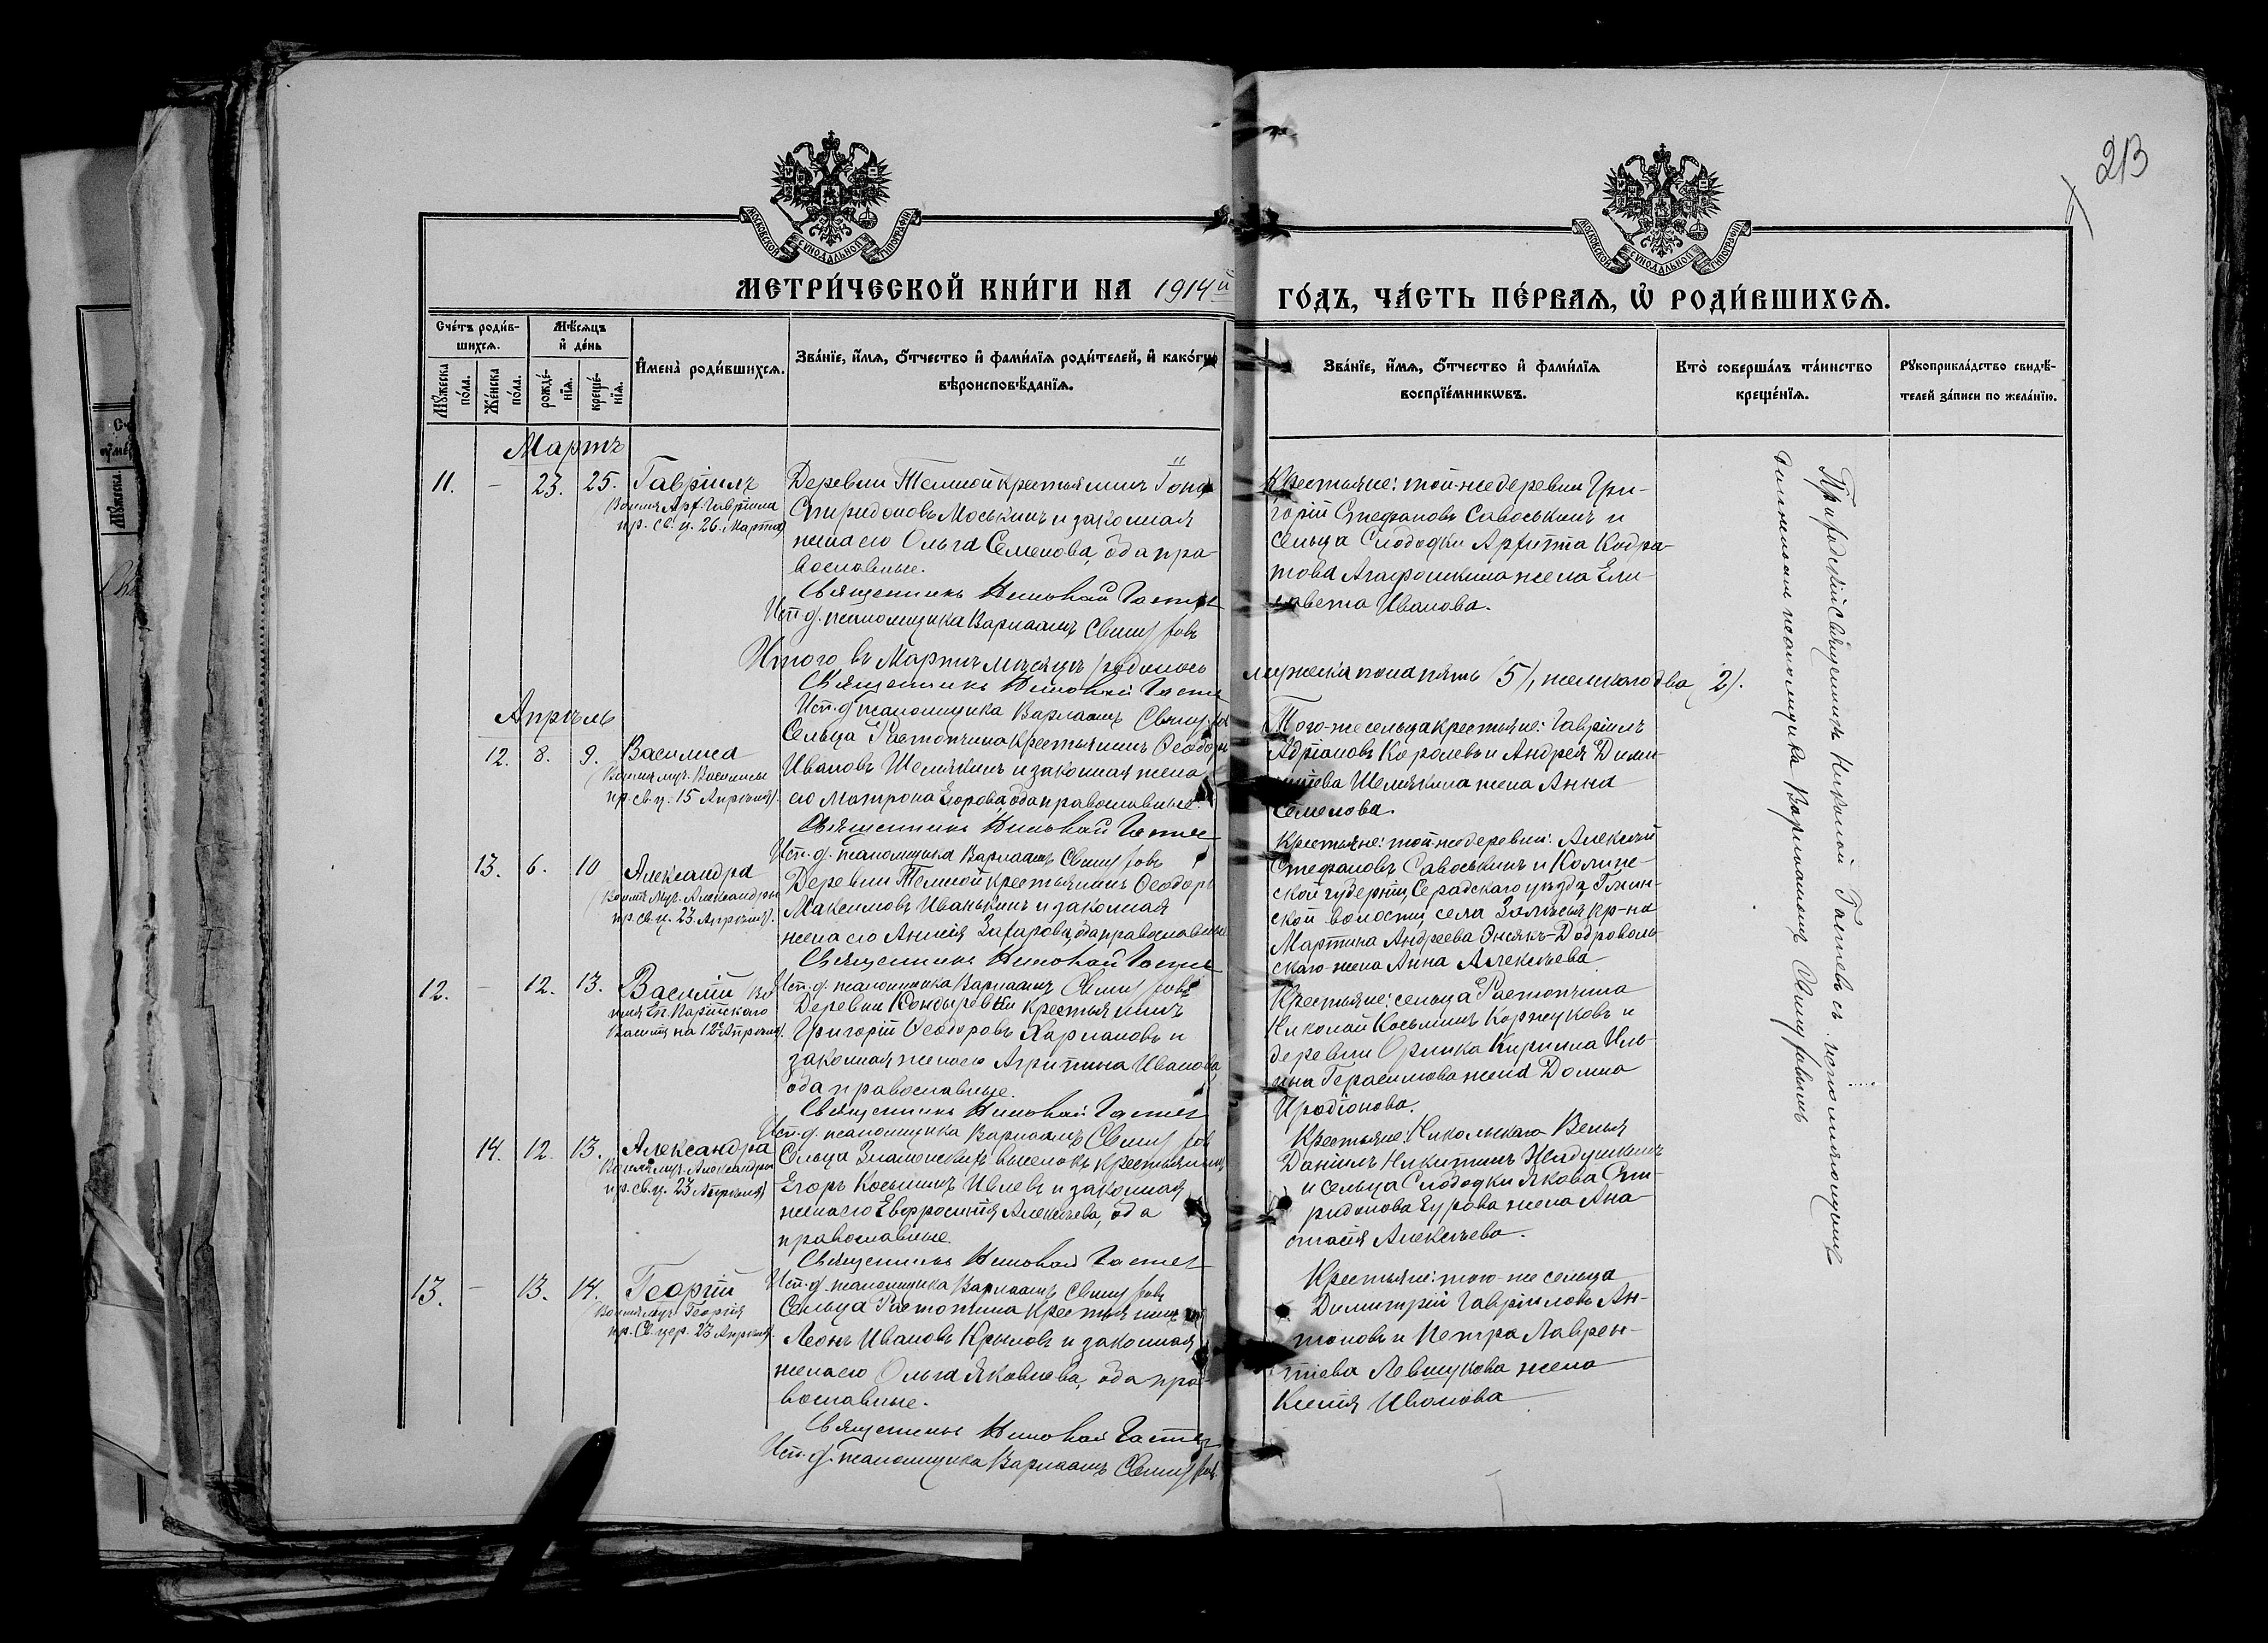 213
МОСКОВСКОЙ СѴНОДАЛЬНОЙ ТИПОГРАФІИ
МОСКОВСКОЙ СѴНОДАЛЬНОЙ ТИПОГРАФІИ
МЕТРИ́ЧЕСКОЙ КНИ́ГИ НА 1914й
ГО́ДЪ, ЧА́СТЬ ПЕ́РВАѦ, Ѡ҆ РОДИ́ВШИХСѦ.
Сче́тъ роди́в-
шихсѧ.
Мѣ́сѧцъ
и҆ де́нь
Мꙋ́жеска
по́ла.
Же́нска
по́ла.
рожде́-
нїѧ.
креще́-
нїѧ.
И҆мена̀ роди́вшихсѧ.
Зва́нїе, и҆́мѧ, ѻ҆́тчество и҆ фами́лїѧ роди́телей, и҆ како́гѡ
вѣроисповѣ́данїѧ.
Зва́нїе, и҆́мѧ, ѻ҆́тчество и҆ фами́лїѧ
воспрїе́мникѡвъ.
Кто̀ соверша́лъ та́инство
креще́нїѧ.
Рꙋкоприкла́дство свидѣ́-
телей за́писи по жела́нїю.
Мартъ
11. – 23. 25. Гавріилъ
Во имя Арх. Гавріила
пр. св. ц. 26. Марта)
Деревни Темной крестьянинъ
Спиридоновъ Моськинъ и законная
жена его Ольга Семенова, оба пра-
вославные.
Священникъ Николай Гастев
Исп. д. псаломщика Варлаамъ
Крестьяне: той-же деревни Гри-
горій Стефановъ Савоськинъ и
сельца Слободки Архиппа Кодра-
това Агафошкина жена Ели-
завета Иванова.
Итого въ Мартѣ мѣсяцѣ родилось
мужеска пола пять /5/, женскаго два /2/.
Священникъ Николай Гастев
Исп. д. псаломщика Варлаамъ
Апрѣль
12. 8. 9. Василиса
(Во имя муч. Василисы
пр. св. ц. 15 Апрѣля).
Сельца Растопчина крестьянинъ Ѳеодоръ
Ивановъ Шемякинъ и законная жена
его Матрона Егорова, оба православные.
Священникъ Николай Гастев
Исп. д. псаломщика Варлаамъ
Того-же сельца крестьяне: Гавріилъ
Адріановъ Королевъ и Андрея Дими-
тріева Шемякина жена Анна
Семенова.
13. 6. 10 Александра
(Во имя муч. Александры
пр. св. ц. 23 Апрѣля).
Деревни Темной крестьянинъ Ѳеодоръ
Максимовъ Иванькинъ и законная
жена его Анисія Захарова, оба православные
Священникъ Николай Гастев
Исп. д. псаломщика Варлаамъ
Крестьяне: той-же деревни: Алексѣй
Стефановъ Савоськинъ и Калиш-
ской губерніи, Серадскаго уѣзда,
ской волости, села кр-на
Мартина Андреева
скаго жена Анна Алексѣева
12. – 12. 13. Василій Во
имя Еп. Парійскаго
Василія на 12е Апрѣля).
Деревни Кондыревки крестьянинъ
Григорій Ѳеодоровъ Харламовъ и
законная жена его Агрипина Иванова,
оба православные.
Священникъ Николай Гастев
Исп. д. псаломщика Варлаамъ
Крестьяне: сельца Растопчина
Николай Косьминъ Коржуковъ и
деревни Орлика Кирилла Иль-
ина Герасимова жена Домна
Иродіонова.
14. 12. 13. Александра
Во имя муч. Александры
пр. св. ц. 23 Апрѣля)
Сельца Знаменскихъ выселокъ крестьянинъ
Егоръ Косьминъ Ивлевъ и законная
жена его Евфросинія Алексѣева, оба
православные.
Священникъ Николай Гастев
Исп. д. псаломщика Варлаамъ
Крестьяне: Никольскаго
Даніилъ Никитинъ
и сельца Слободки Якова Спи-
ридонова Гурова жена Ана-
стасія Алексѣева.
13. – 13. 14. Георгій
Во имя муч. Георгія
пр. Св. цер. 23 Апрѣля).
Сельца Растопчина крестьянинъ
Леонъ Ивановъ Крыловъ и законная
жена его Ольга Яковлева, оба пра-
вославные.
Священникъ Николай Гастев
Исп. д. псаломщика Варлаамъ
Крестьяне: того-же сельца
Димитрій Гавріиловъ Ан-
тоновъ и Петра Лаврен-
тіева Левшукова жена
Ксенія Иванова
Приходскій Священникъ Николай Гастевъ съ исполняющимъ
должность псаломщика Варлаамомъ